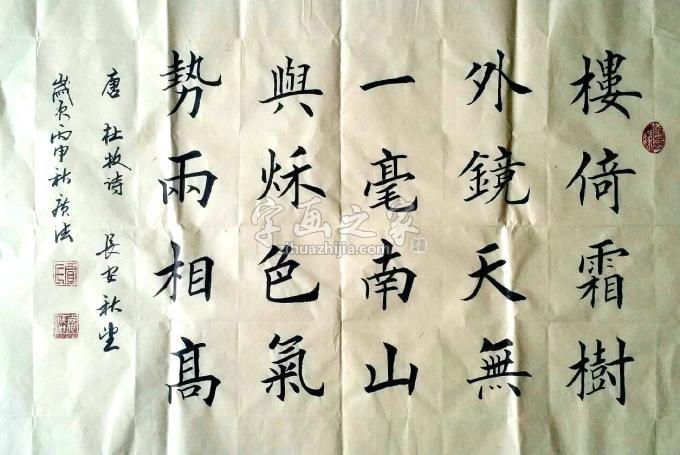 樓倚霜樹
外鏡天無
一毫南山
與秌色氣
勢兩相高
唐 杜牧诗 長安秋望
歲次丙申秋 广法
字画之家
zihuazhijia.com